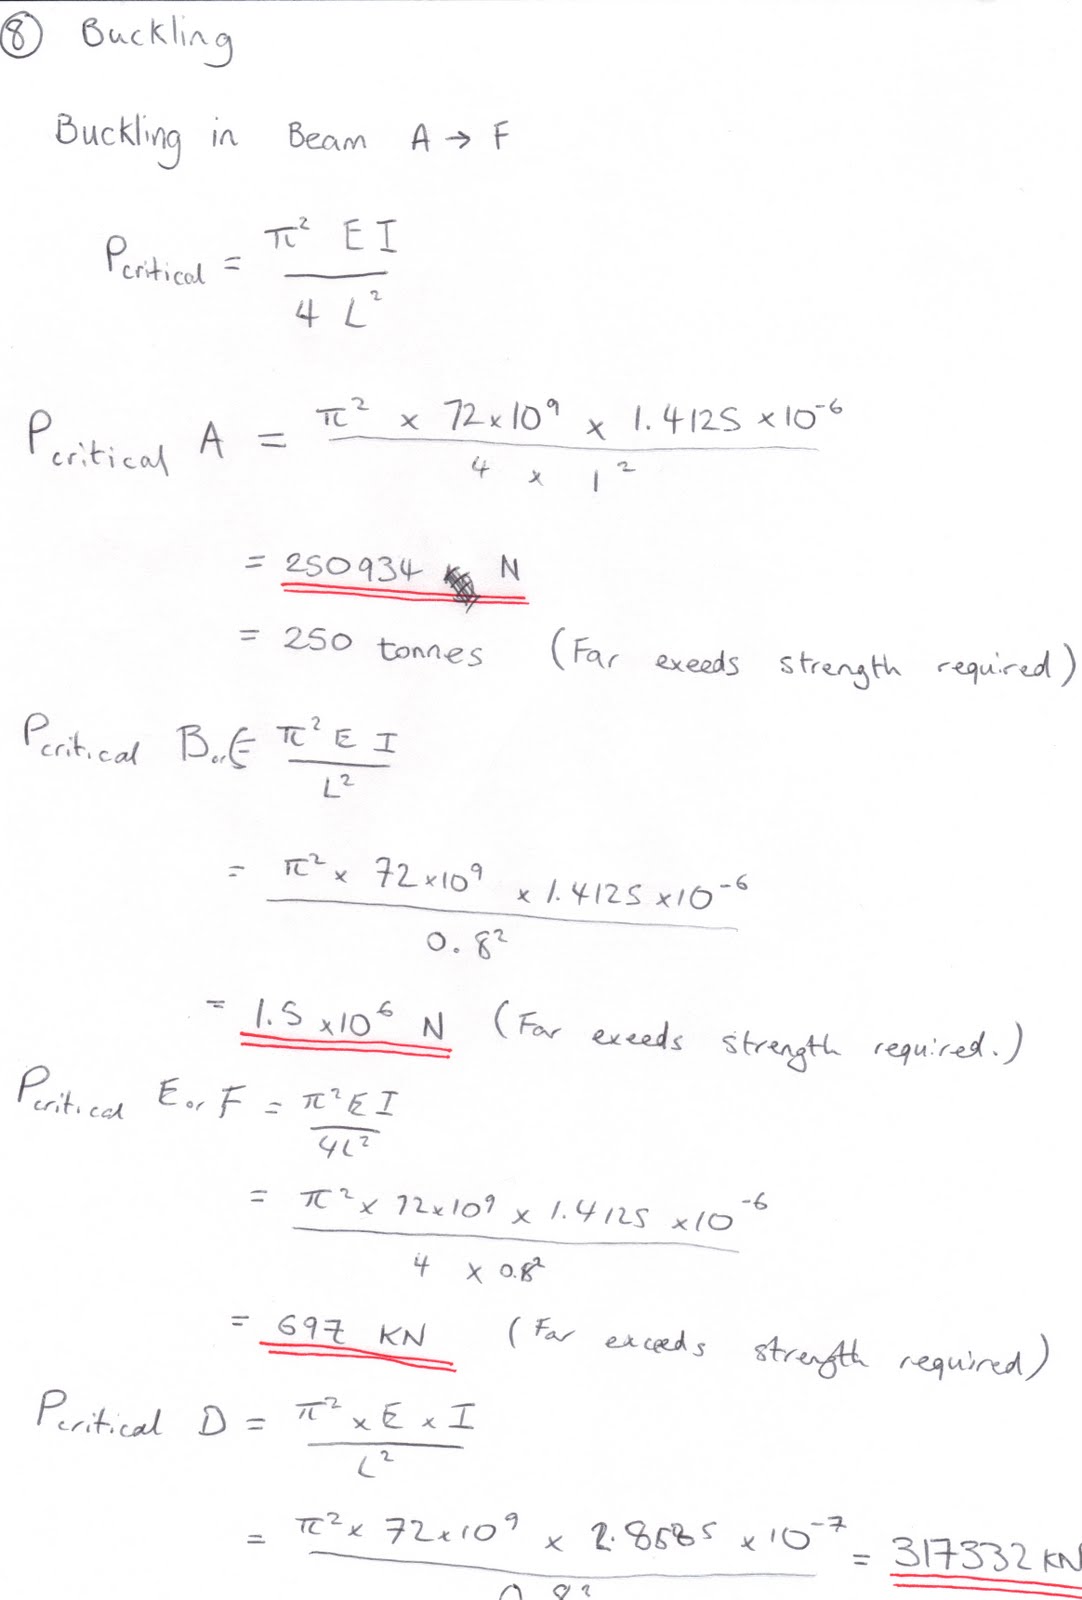 ⑧ Buckling
Buckling in Beam A → F
Pcritical = π² E I / 4 L²
Pcritical A = π² × 72×10⁹ × 1.4125 ×10⁻⁶ / 4 × 1²
= 250934 N
= 250 tonnes (Far exeeds strength required)
Pcritical B or E π² E I / L²
= π² × 72×10⁹ × 1.4125 ×10⁻⁶ / 0.8²
= 1.5 ×10⁶ N (Far exeeds strength required.)
Pcritical E or F = π² E I / 4L²
= π² × 72×10⁹ × 1.4125 ×10⁻⁶ / 4 × 0.8²
= 697 KN (Far exceeds strength required)
Pcritical D = π² × E × I / L²
= π² × 72×10⁹ × 2.8585 × 10⁻⁷ / 0.8² = 317332 KN